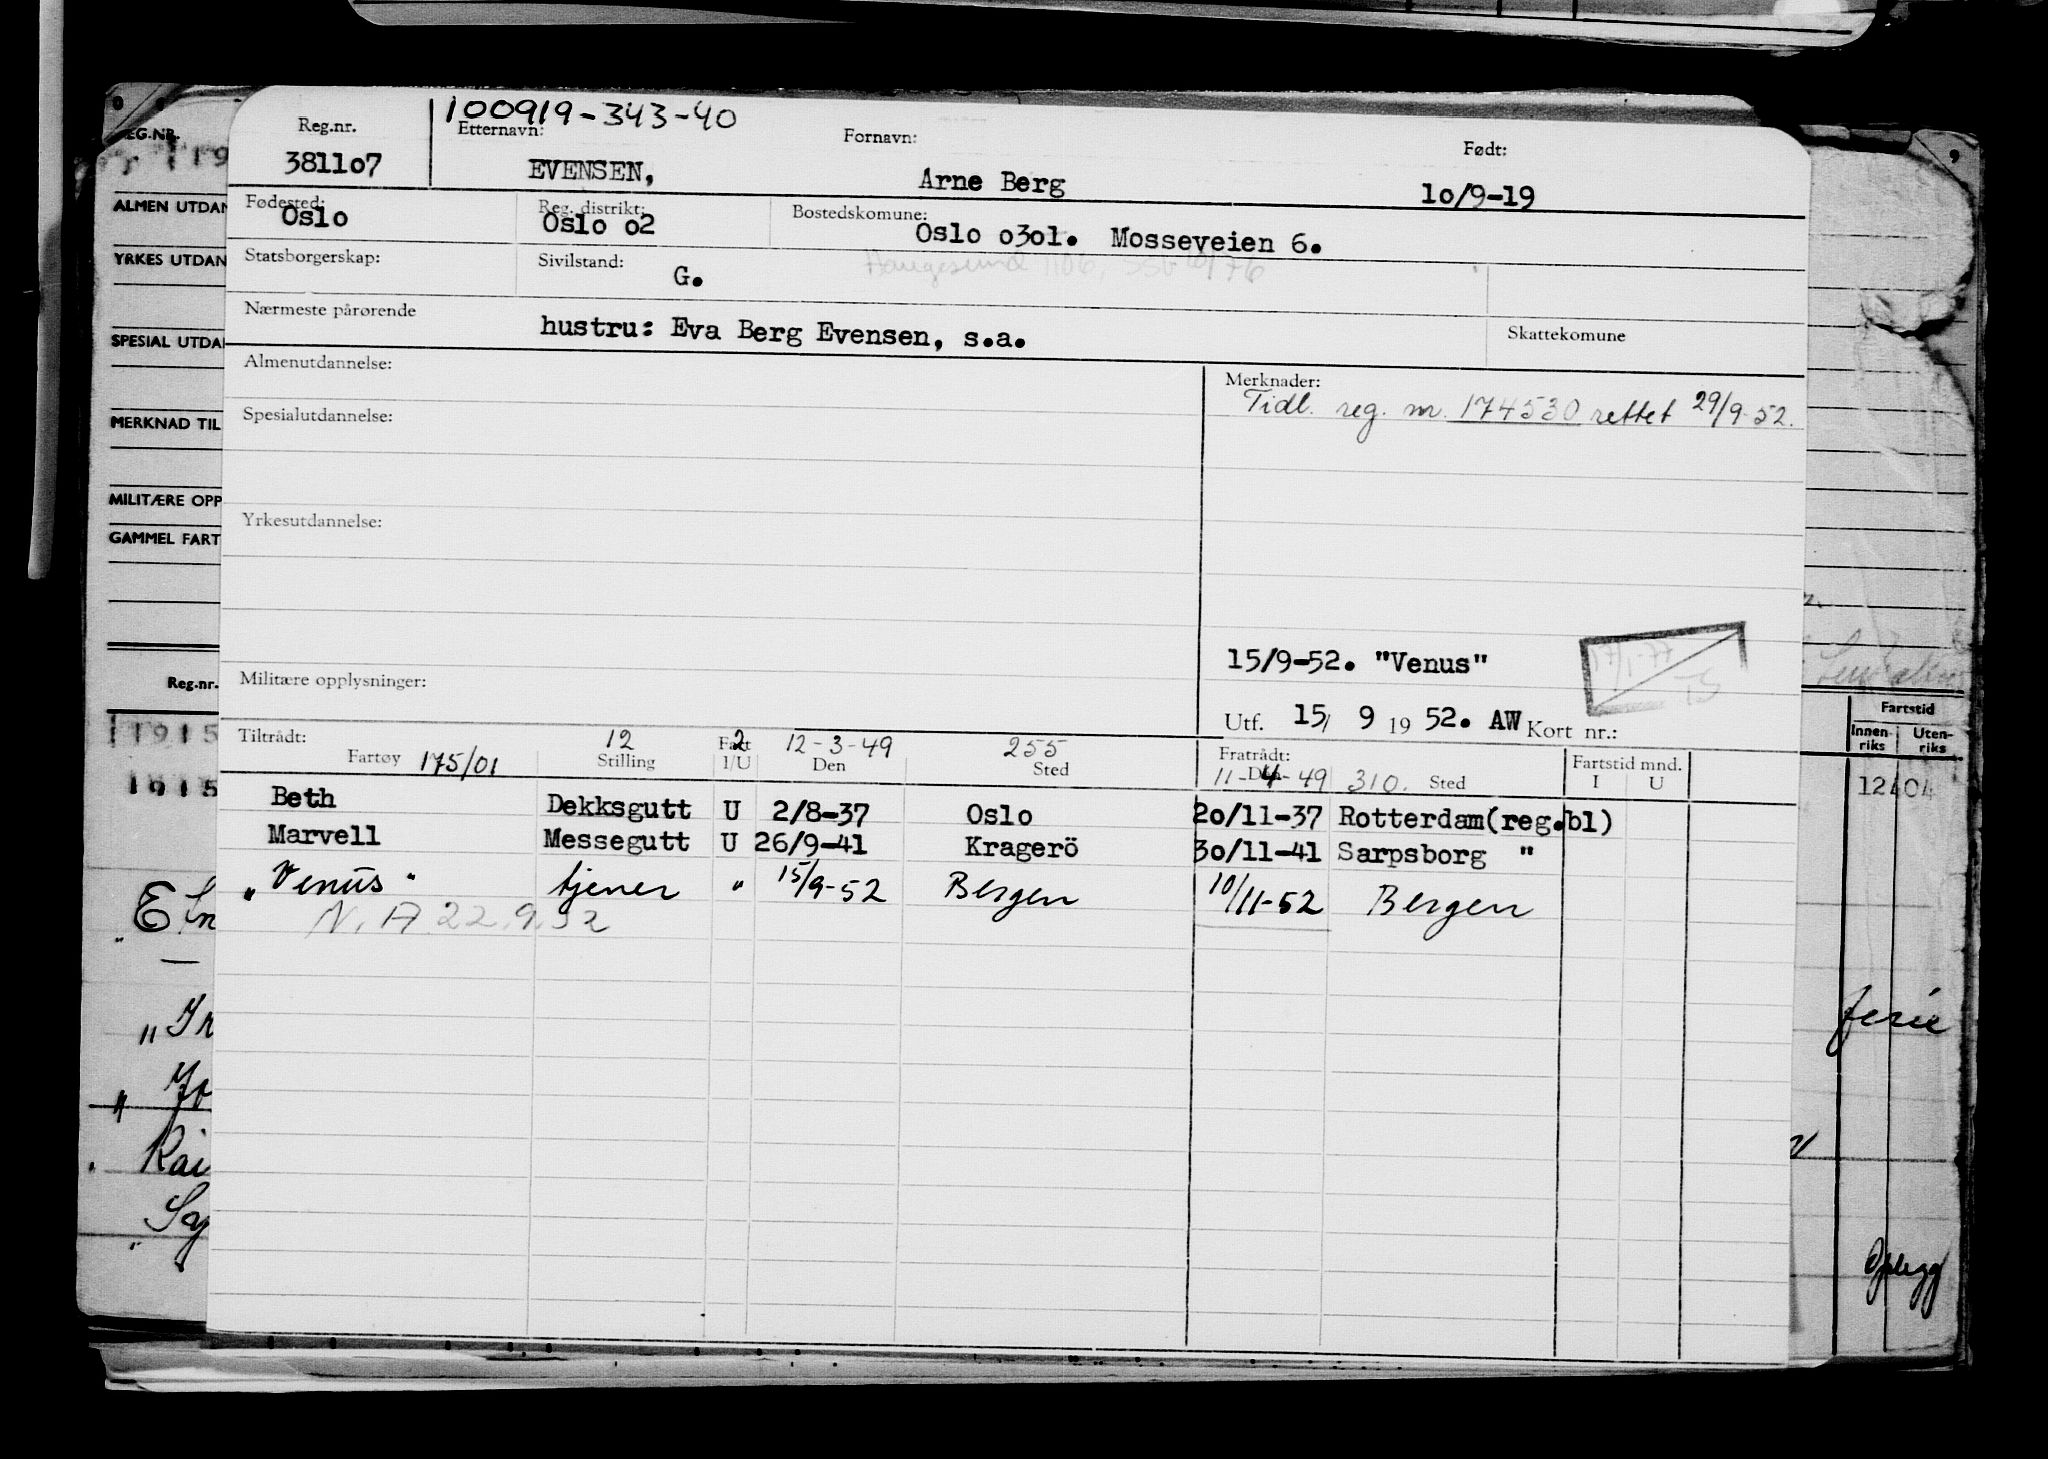 100919-343-40
Reg.nr. Etternavn: Fornavn: Født:
381107 EVENSEN, Arne Berg 10/9-19
Fødested: Reg. distrikt: Bostedskomune:
Oslo Oslo o2 Oslo o3o1. Mosseveien 6.
Statsborgerskap: Sivilstand: G. Haugesund 1106, 76
Nærmeste pårørende hustru: Eva Berg Evensen, s.a. Skattekomune
Almenutdannelse: Merknader:
Tidl. reg. nr. 174530 rettet 29/9-52.
Spesialutdannelse:
Yrkesutdannelse:
15/9-52. "Venus"
17/1-77
TS
Militære opplysninger:
Utf. 15/ 9 19 52. AW Kort nr.:
Tiltrådt: 12 2 12-3-49 255 Fratrådt: Fartstid mnd.
Fartøy 175/01 Stilling Fart I/U Den Sted 11-4-49 310. Den Sted I U
Beth Dekksgutt U 2/8-37 Oslo 20/11-37 Rotterdam(reg.bl)
Marvell Messegutt U 26/9-41 Kragerö 30/11-41 Sarpsborg "
"Venus" tjener " 15/9-52 Bergen 10/11-52 Bergen
N.A 22.9.52
REG.NR.
ALMEN UTDAN
YRKES UTDAN
SPESIAL UTDAN
MERKNAD TIL
MILITÆRE OPP
GAMMEL FART
Reg.nr.
1915
1915
Fartstid
Innenriks Utenriks
12404
ferie
Opplegg